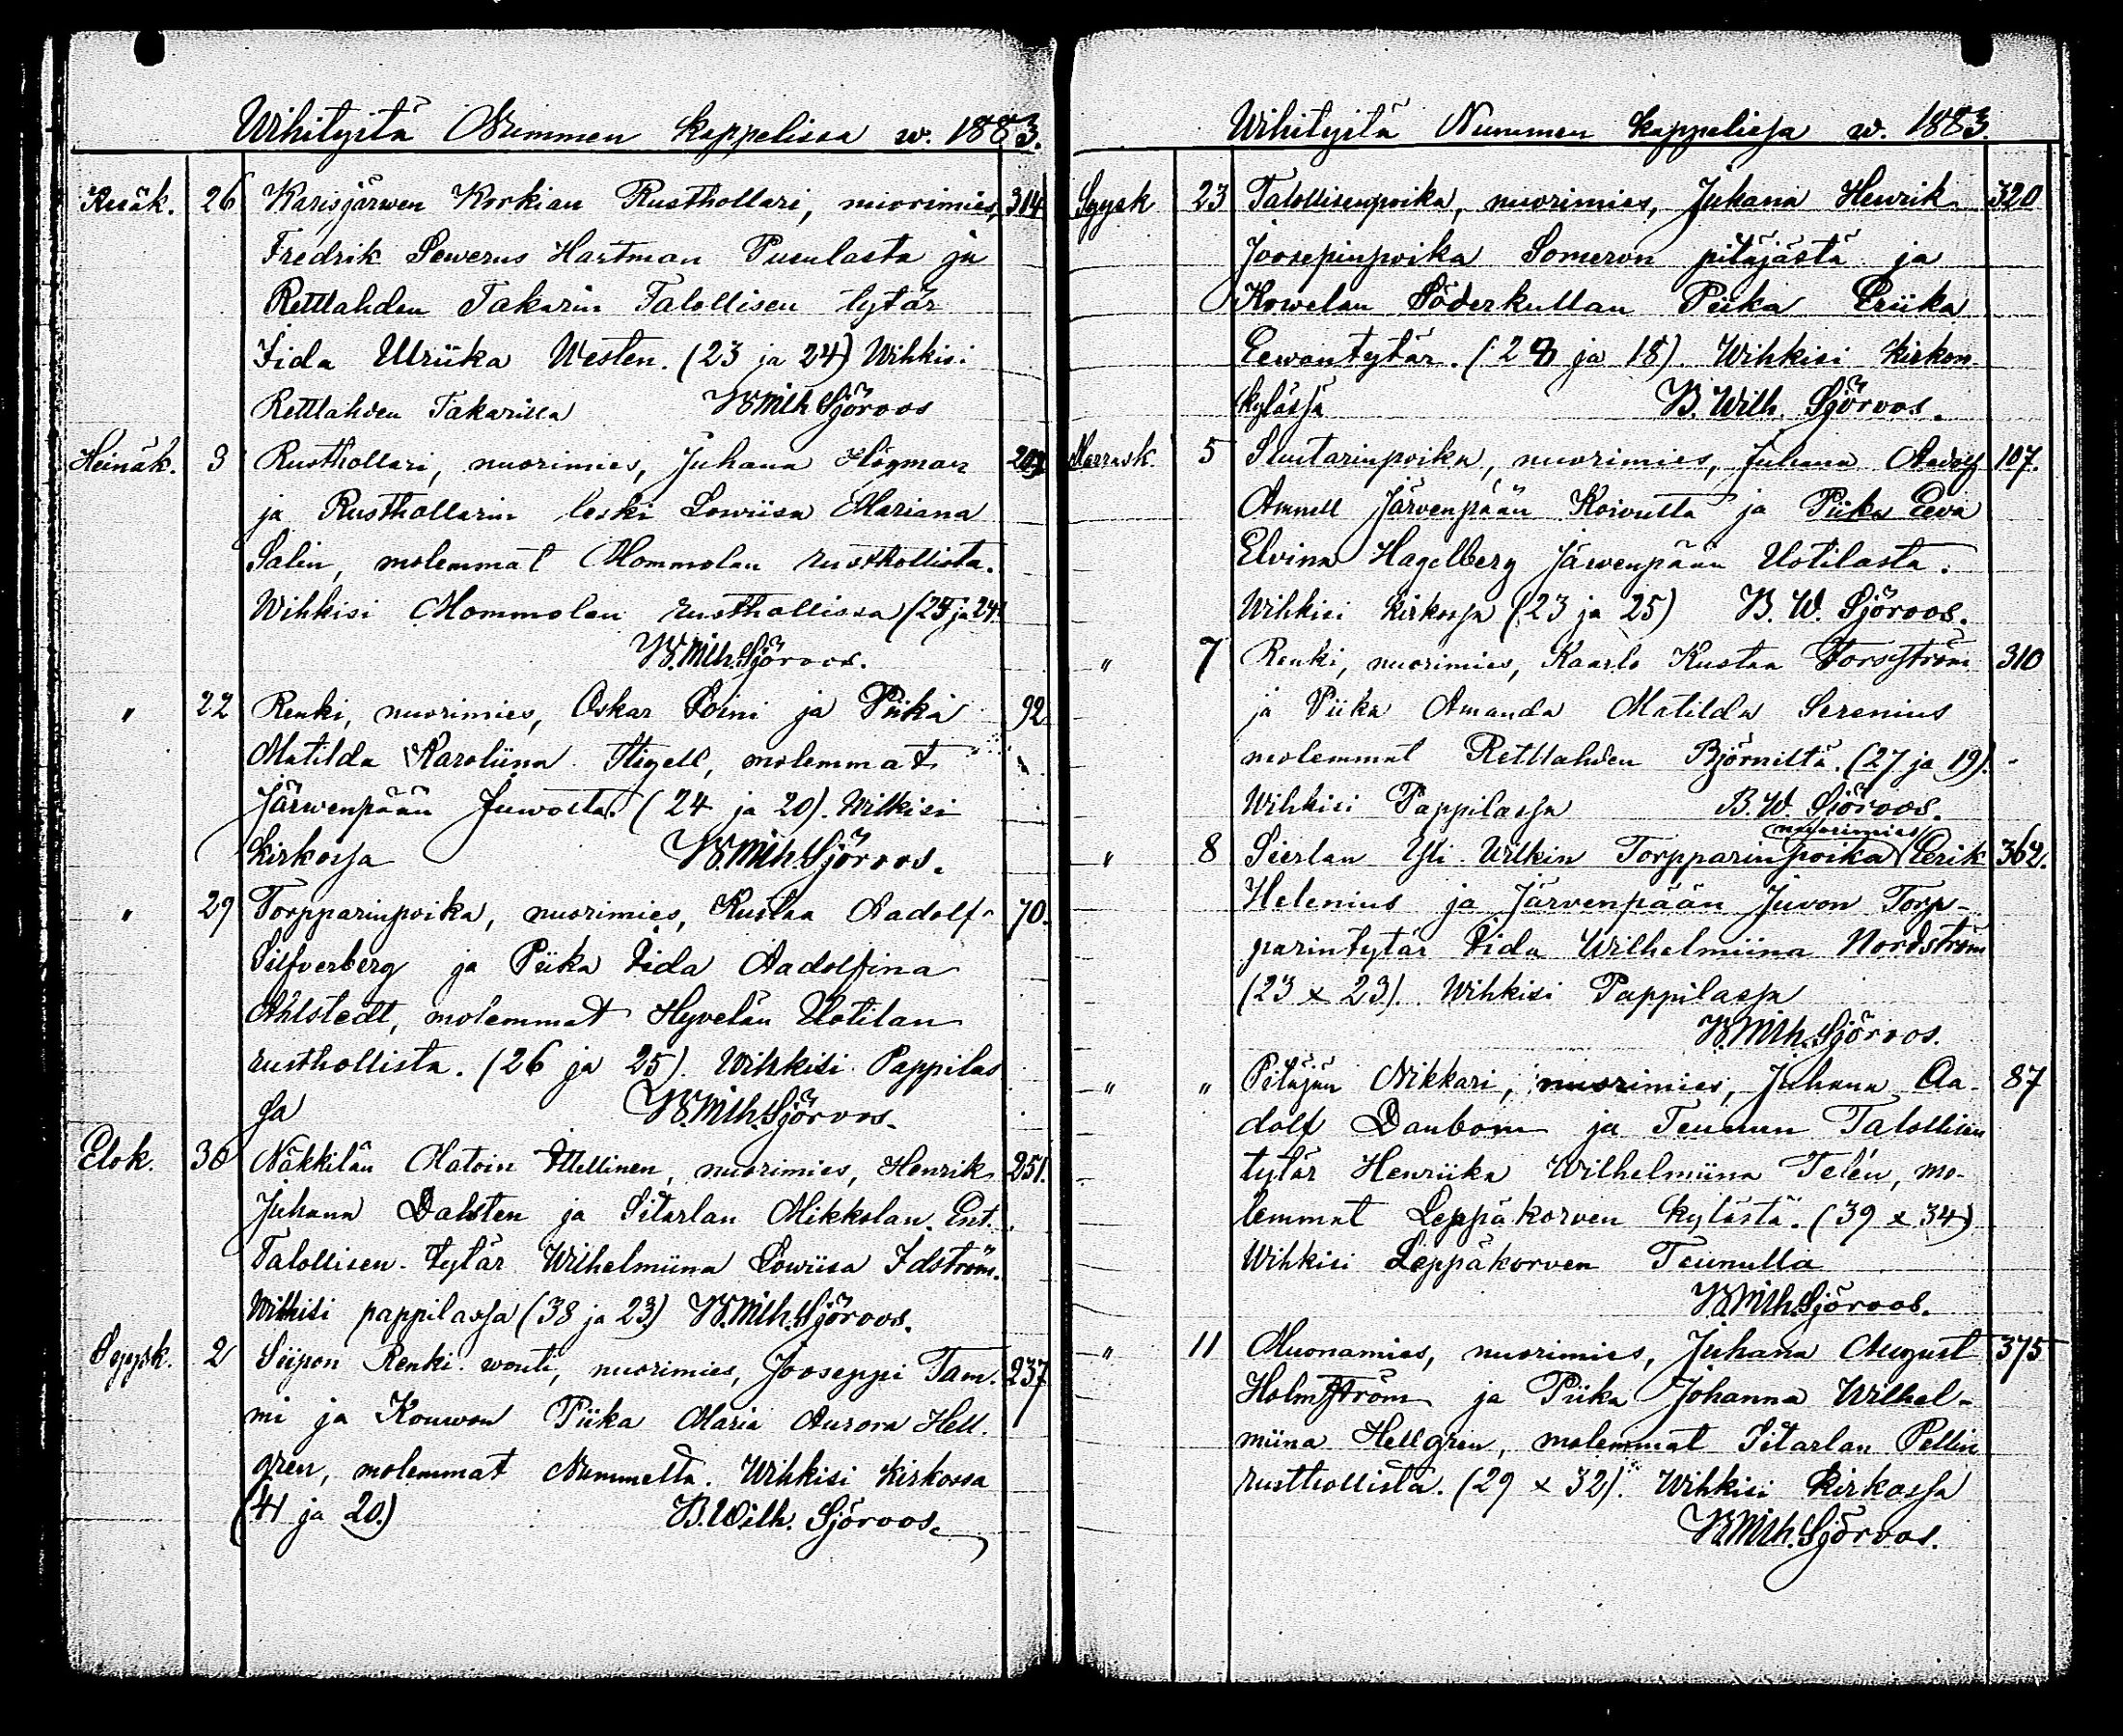 Wihityitä Nummen kappelissa w. 1883.
Kesäk. 26 Karisjärwen Korkian Rusthollari, nuorimies, 314
Fredrik Sewerus Hartman Pusulasta ja
Rettlahden Takarin Talollisen tytär
Iida Ulriika Westen. (23 ja 24) Wihkisi
Rettlahden Takarilla W Wilh Sjöroos
Heinäk. 3 Rusthollari, nuorimies, Juhana Högman
ja Rusthollarin leski Lowiisa Mariana
Salin, molemmat Mommolan rusthollista.
Wihkisi Mommolan rusthollissa (25 ja 24)
B. Wilh. Sjöroos.
" 22 Renki, nuorimies, Oskar Soini ja Piika 92
Matilda Karoliina Stigell, molemmat
Järwenpään Juwolta. (24 ja 20). Wihkisi
Kirkossa B. Wilh. Sjöroos.
" 29 Torpparinpoika, nuorimies, Kustaa Aadolf 70.
Silfverberg ja Piika Iida Aadolfina
Ahlstedt, molemmat Hyvelän Uotilan
rusthollista. (26 ja 25). Wihkisi Pappilas
sa B. Wilh. Sjöroos.
Elok. 30 Näkkilän Matoin Itellinen, nuorimies, Henrik 251.
Juhana Dahlsten ja Sitarlan Mikkolan. Ent.
Talollisen tytär Wilhelmiina Lowiisa Idström.
Wihkisi pappilassa (38 ja 23) B. Wilh. Sjöroos.
Syysk. 2 Siipon Renki wouti, nuorimies, Jooseppi Tam- 237
mi ja Kouwon Piika Maria Aurora Hell-
gren, molemmat Nummelta. Wihkisi Kirkossa
(41 ja 20.) B. Wilh. Sjöroos.
Wihityitä Nummen kappelissa w. 1883.
Syysk 23 Talollisenpoika, nuorimies, Juhana Henrik 320
Joosepinpoika Someron pitäjästä ja
Kowelan Söderkullan Piika Eriika
Eewantytär. (28 ja 18). Wihkisi kirkon-
kylässä B. Wilh. Sjöroos.
Marrask. 5 Suutarinpoika, nuorimies, Juhana Aadolf 107.
Amnell Järvenpään Koivulta ja Piika Eeva
Elvina Hagelberg Järwenpään Uotilasta.
Wihkisi kirkossa (23 ja 25) B. W. Sjöroos.
" 7 Renki, nuorimies, Kaarlo Kustaa Forsström 310
ja Piika Amanda Matilda Serenius
molemmat Rettlahden Björniltä. (27 ja 19).
Wihkisi Pappilassa B. W. Sjöroos.
nuorimies
" 8 Sierlan Yli Wilkin Torpparinpoika Eerik 362.
Helenius ja Järvenpään Juvon Torp-
parintytär Iida Wilhelmiina Nordström
(23 x 23). Wihkisi Pappilassa
B. Wilh. Sjöroos.
" " Pitäjän Nikkari, nuorimies, Juhana Aa- 87
dolf Danbom ja Teunun Talollisen
tytär Henriika Wilhelmiina Telén, mo-
lemmat Leppäkorven kylästä. (39 x 34)
Wihkisi Leppäkorven Teunulla
B. Wilh. Sjöroos.
" 11 Muonamies, nuorimies, Juhana August 375
Holmström ja Piika Johanna Wilhel-
miina Hellgren, molemmat Sitarlan Pellin
rusthollista. (29 x 32). Wihkisi Kirkossa
B. Wilh. Sjöroos.